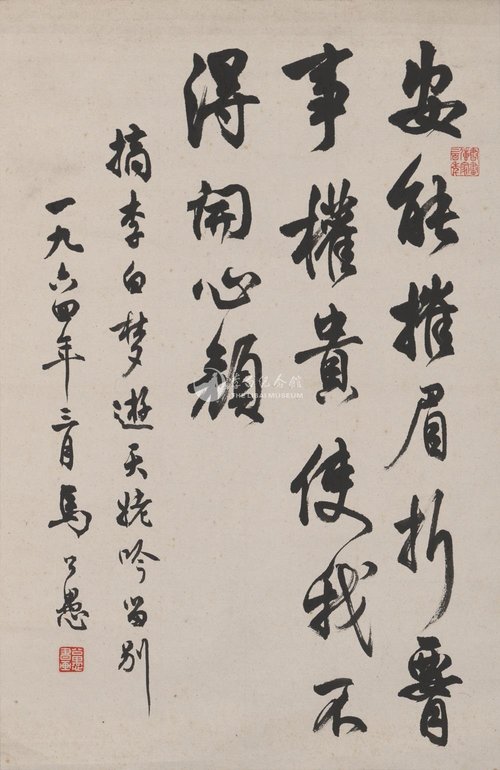 安能摧眉折腰
事權貴使我不
得開心顔
摘李白梦遊天姥吟留别
一九六四年三月馬公愚
李白纪念馆
THE LIBAI MUSEUM